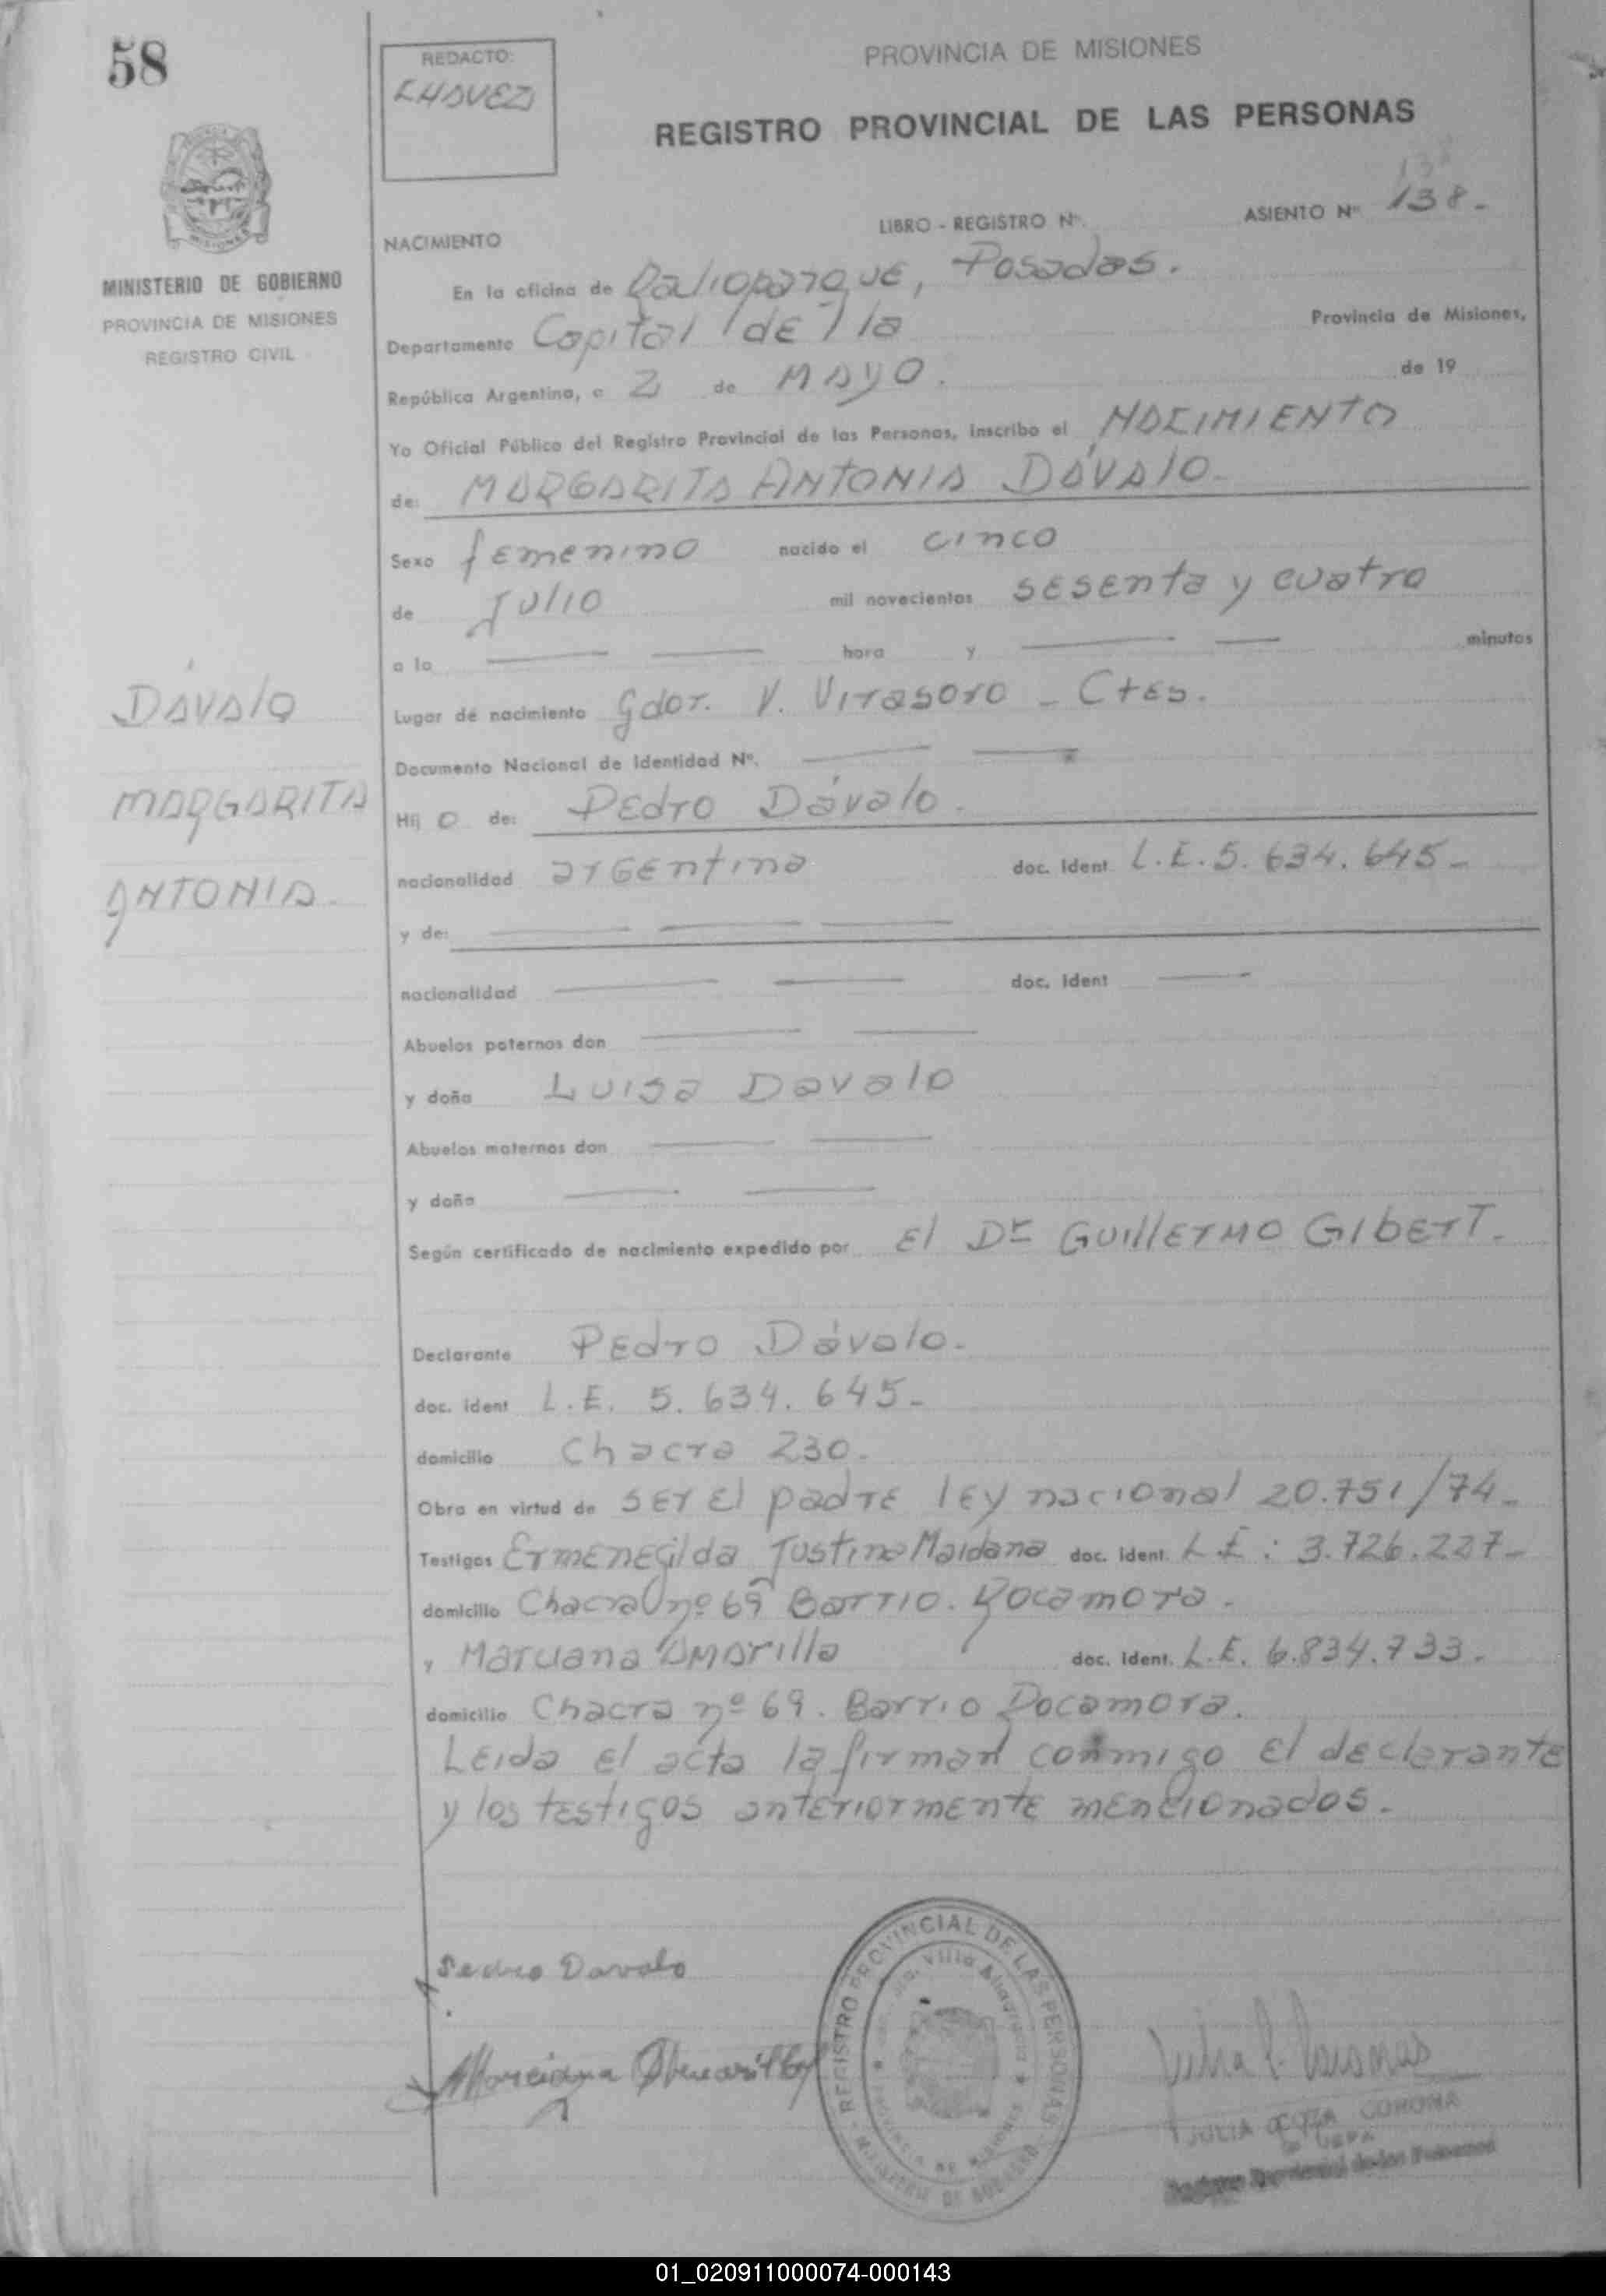 58
REDACTO:
CHAVEZ
PROVINCIA DE MISIONES
REGISTRO PROVINCIAL DE LAS PERSONAS
MINISTERIO DE GOBIERNO
PROVINCIA DE MISIONES
REGISTRO CIVIL
NACIMIENTO LIBRO - REGISTRO Nº. ASIENTO Nº 138-
En la oficina de Radioparque, Posadas.
Departamento Capital de la Provincia de Misiones,
República Argentina, a 2 de MAYO. de 19
Yo Oficial Público del Registro Provincial de las Personas, inscribo el NACIMIENTO
de: MARGARITA ANTONIA DÁVALO-
Sexo femenino nacido el cinco
de Julio mil novecientos sesenta y cuatro
a la hora y minutos
DÁVALO
MARGARITA
ANTONIA.
Lugar de nacimiento Gdor. V. Virasoro - Ctes.
Documento Nacional de Identidad Nº.
Hij o de: Pedro Dávalo.
nacionalidad argentina doc. Ident L.E. 5.634.645-
y de:
nacionalidad doc. Ident
Abuelos paternos don
y doña Luisa Davalo
Abuelos maternos don
y doña
Según certificado de nacimiento expedido por El Dr Guillermo Gibert.
Declarante Pedro Dávalo.
doc. ident L.E. 5.634.645-
domicilio Chacra 230.
Obra en virtud de ser el padre ley nacional 20.751/74-
Testigos Ermenegilda Justina Maidana doc. Ident. L E: 3.726.227-
domicilio Chacra nº 69 Barrio. Rocamora.
y Marciana Amarilla doc. Ident. L.E. 6.834.733.
domicilio Chacra nº 69. Barrio Rocamora.
Leida el acta la firman conmigo el declarante
y los testigos anteriormente mencionados.
Pedro Davalo
Marciana Amarilla
REGISTRO PROVINCIAL DE LAS PERSONAS
MINISTERIO DE GOBIERNO
PROVINCIA DE MISIONES
JULIA CORONA
Registro Provincial de las Personas
01_020911000074-000143